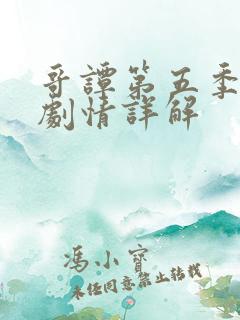 哥譚第五季
劇情詳解
馮小寶
未经同意禁止转载